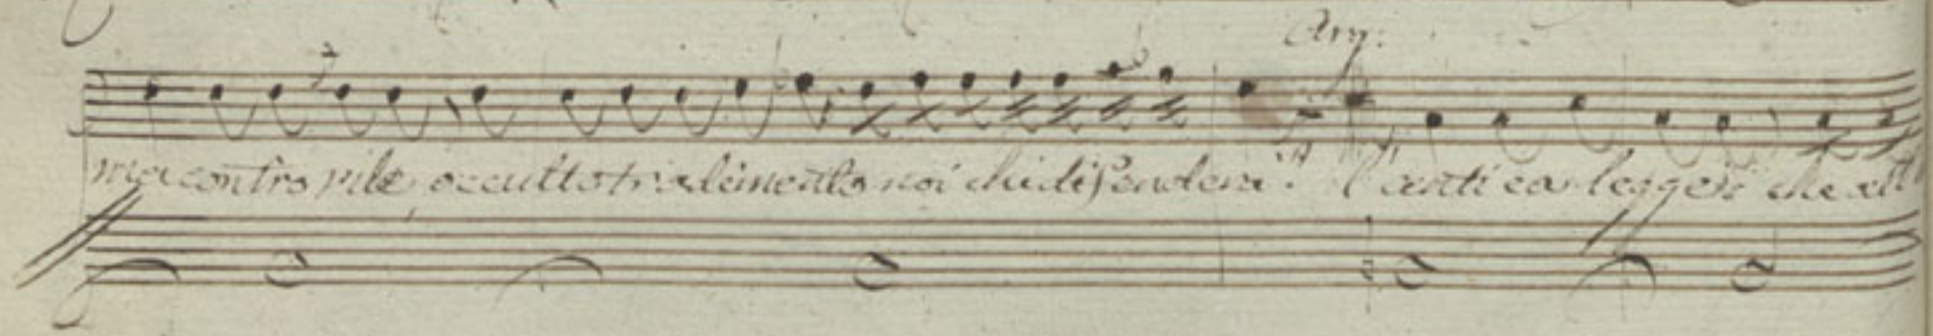 Arg:
mia contro vile occulto tradimento noi chi difenderà? l'antica legge